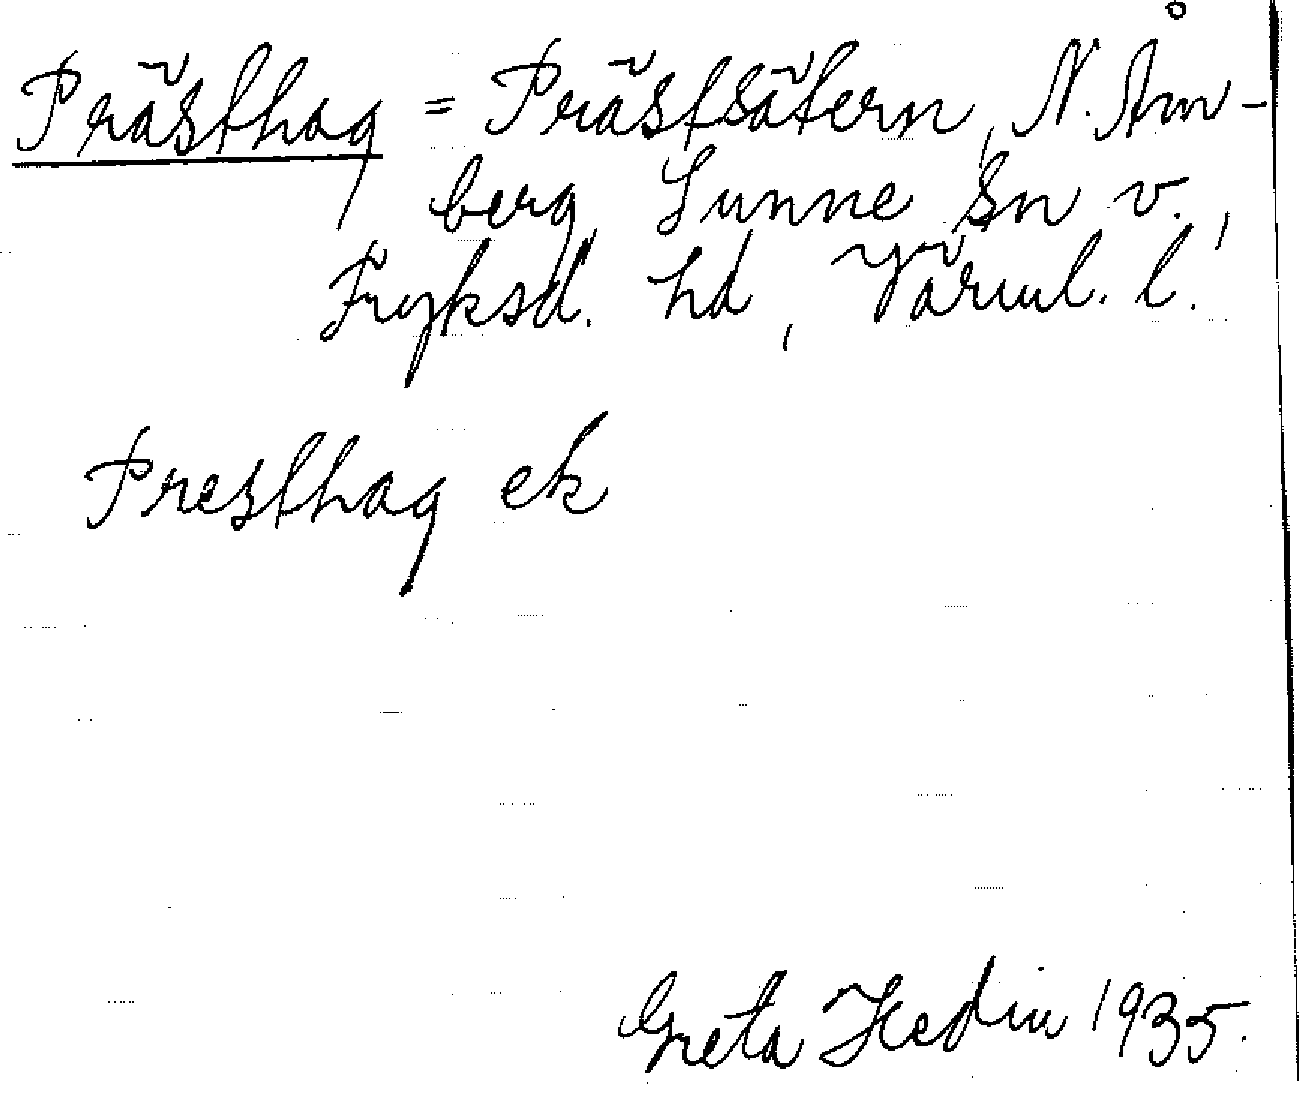 Prästhag = Prästsätern, N. Åm-
berg, Sunne sn v.,
Fryksd. hd, Värml. l.
Presthag ek
Greta Hedin 1935.